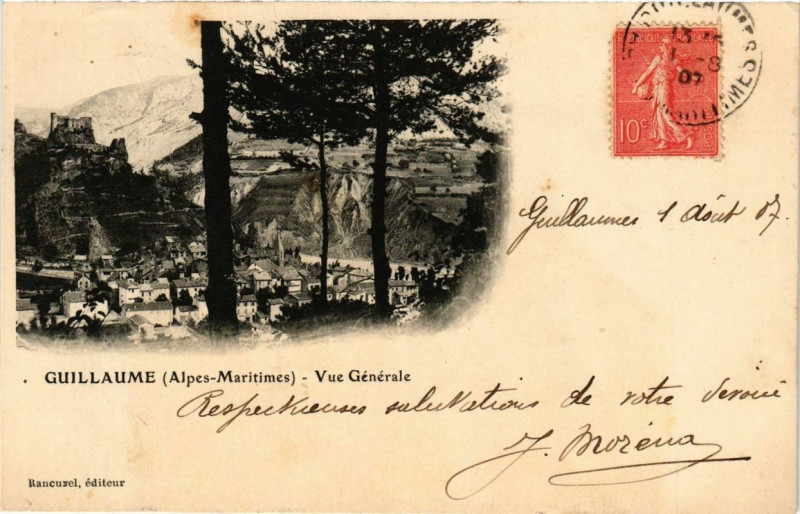 GUILLAUMES
13
8
07
10c
Guillaumes 1 Août 07.
GUILLAUME (Alpes-Maritimes) - Vue Générale
Respectueuses salutations de votre dévoué
J. Moréna
Rancurel, éditeur